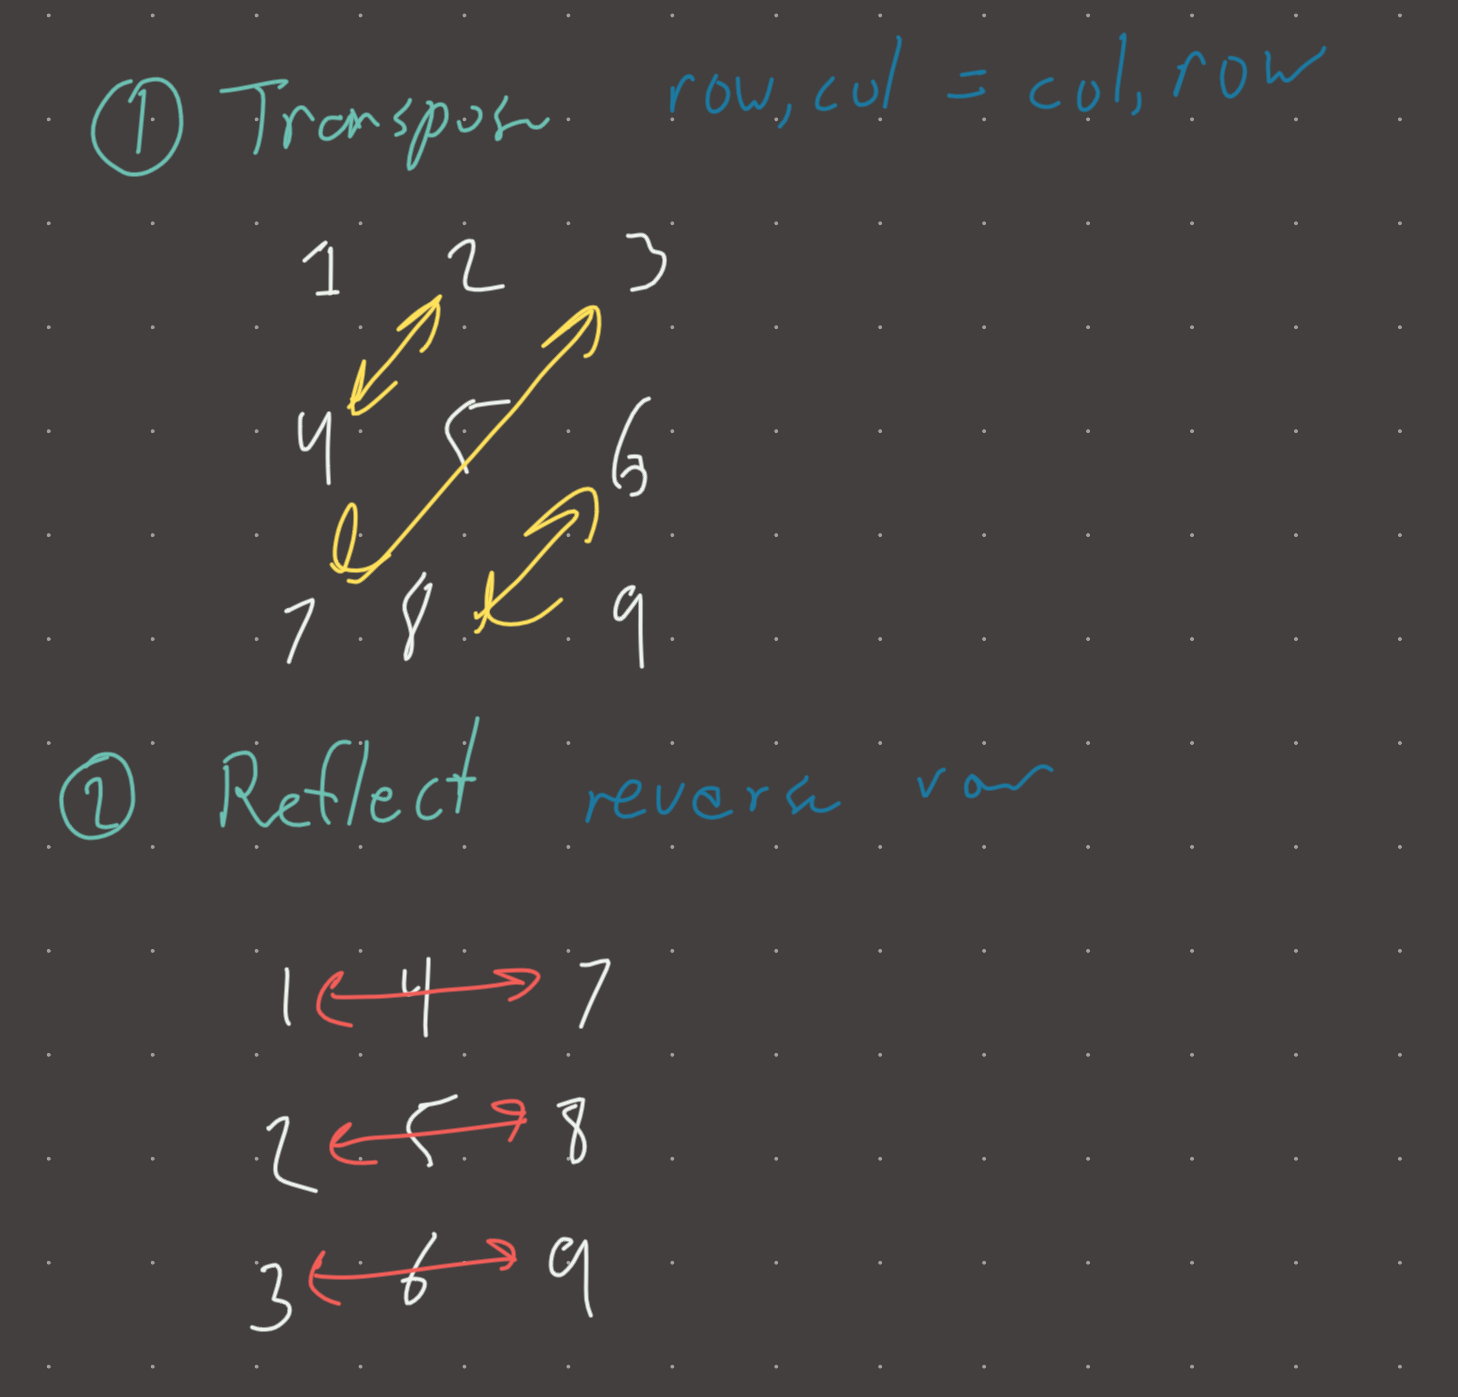 ① Transpose row, col = col, row
1 2 3
4 5 6
7 8 9
② Reflect reverse row
1 4 7
2 5 8
3 6 9